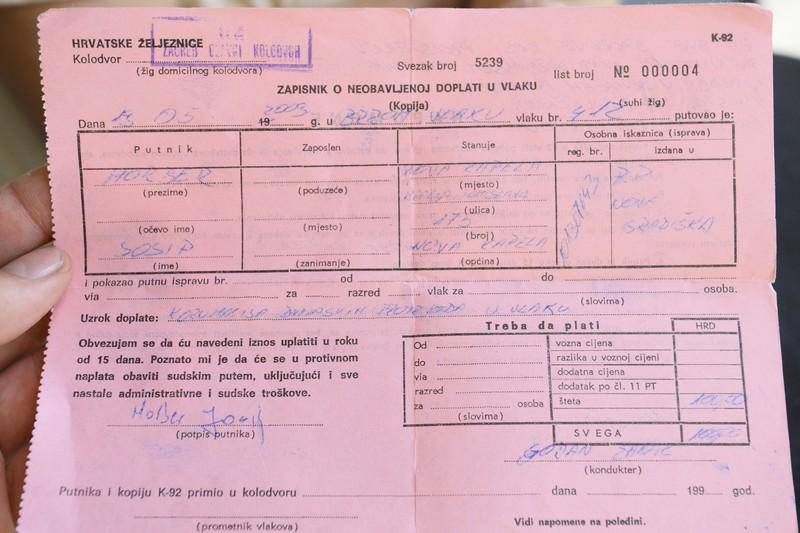 HRVATSKE ŽELJEZNICE
Kolodvor
ZAGREB GLAVNI KOLODVOR
(žig domicilnog kolodvora)
K-92
Svezak broj 5239
list broj № 000004
ZAPISNIK O NEOBAVLJENOJ DOPLATI U VLAKU
(Kopija)
(suhi žig)
Dana 05 2003 19 g. u BRZOM VLAKU vlaku br. 412 putovao je:
Putnik Zaposlen Stanuje Osobna iskaznica (isprava)
reg. br. izdana u
NOVA KAPELA
(prezime) (poduzeće) (mjesto)
NOVA
175
(očevo ime) (mjesto) (ulica)
GRADIŠKA
JOSIP (broj)
NOVA KAPELA
(ime) (zanimanje) (općina)
i pokazao putnu ispravu br. od do
via za razred vlak za osoba.
(slovima)
Uzrok doplate: U VLAKU
Treba da plati HRD
Obvezujem se da ću navedeni iznos uplatiti u roku
od 15 dana. Poznato mi je da će se u protivnom
naplata obaviti sudskim putem, uključujući i sve
nastale administrativne i sudske troškove.
(potpis putnika)
Od
do
via
razred
za osoba
(slovima)
vozna cijena
razlika u voznoj cijeni
dodatna cijena
dodatak po čl. 11 PT
šteta 100,00
SVEGA 100,00
(kondukter)
Putnika i kopiju K-92 primio u kolodvoru dana 199 god.
(prometnik vlakova)
Vidi napomene na poleđini.